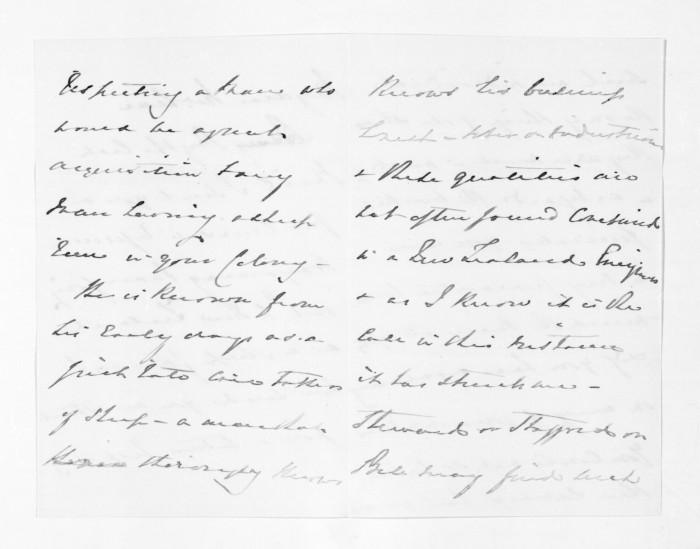 respecting a man who
would be a great
acquisition to any
man having a sheep
in your Colony -
He is known from
his early days as a
first rate care taker
of sheep - a man that
thoroughly knows
knows his business
honest - sober & industrious
& these qualities are
not often found combined
in a New Zealand
& as I know it is the
case in this instance
it has struck me -
Steward or Stafford or
Bell may find such